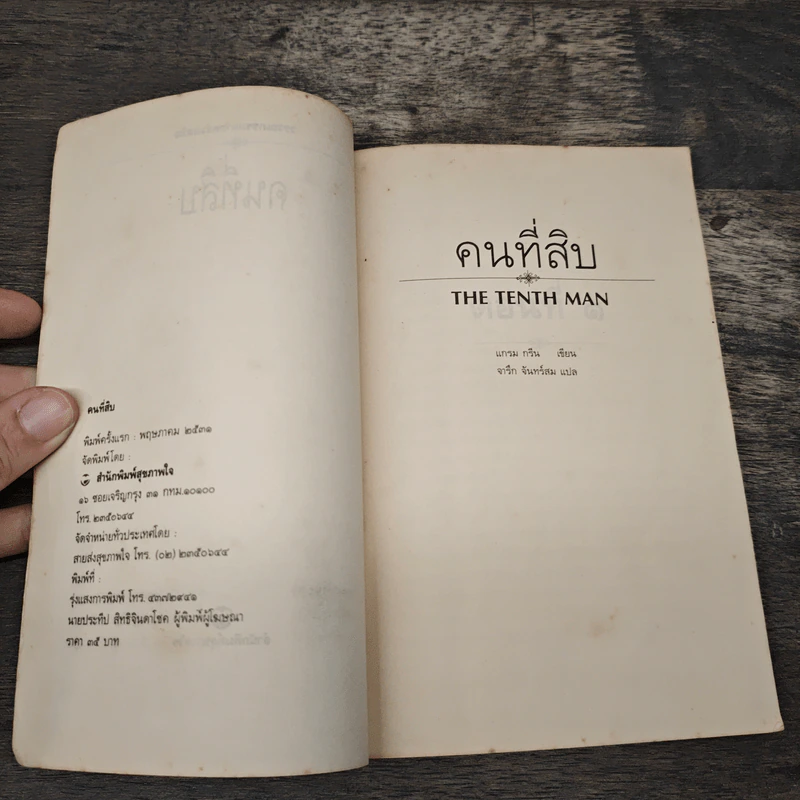 คนที่สิบ
พิมพ์ครั้งแรก : พฤษภาคม ๒๕๓๑
จัดพิมพ์โดย :
สำนักพิมพ์สุขภาพใจ
๑๖ ซอยเจริญกรุง ๓๑ กทม.๑๐๑๐๐
โทร. ๒๓๕๐๖๔๔
จัดจำหน่ายทั่วประเทศโดย :
สายส่งสุขภาพใจ โทร. (๐๒) ๒๓๕๐๖๔๔
พิมพ์ที่ :
รุ่งแสงการพิมพ์ โทร. ๔๓๗๒๙๔๑
นายประทีป สิทธิจินดาโชค ผู้พิมพ์ผู้โฆษณา
ราคา ๓๕ บาท
คนที่สิบ
THE TENTH MAN
แกรม กรีน เขียน
จารึก จันทร์สม แปล